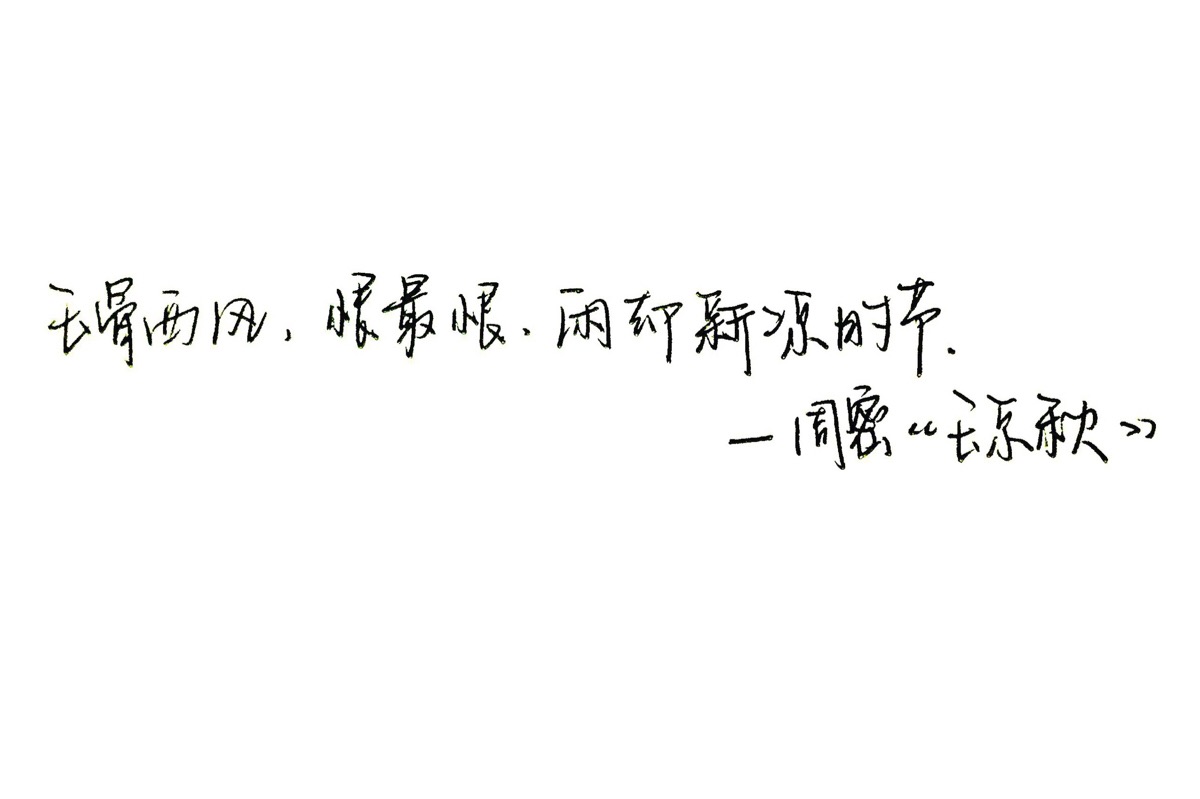 玉骨西风，恨最恨、闲却新凉时节.
—周密《玉京秋》